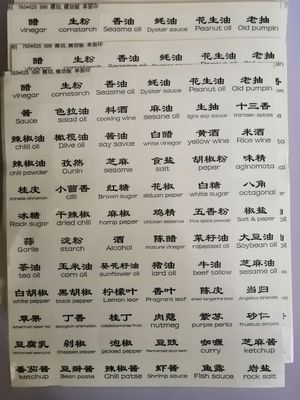 765*525 500 横切,横切版 单面印
醋 生粉 香油 蚝油 花生油 老抽
vinegar cornstarch Seasme oil Oyster sauce Peanut oil Old pumpin
765*525 500 横切,横切版 单面印
醋 生粉 香油 蚝油 花生油 老抽
vinegar cornstarch Seasme oil Oyster sauce Peanut oil Old pumpin
765*525 500 横切,横切版 单面印
醋 生粉 香油 蚝油 花生油 老抽
vinegar cornstarch Seasme oil Oyster sauce Peanut oil Old pumpin
酱 色拉油 料酒 麻油 生抽 十三香
Sauce salad oil cooking wine sesame oil light soy sauce thirteen spices
辣椒油 橄榄油 酱油 白醋 黄酒 米酒
chili oil Olive oil say savce white vinegar Yellow wine Rice wine
辣椒粉 孜然 芝麻 食盐 胡椒粉 味精
chili pawcler Gunin sesame salt peper aginomota
桂皮 小茴香 红糖 花椒 白糖 八角
chinese cinnamon cilli Brown sugar siduan pepper white sugar octagonal
冰糖 干辣椒 麻椒 鸡精 五香粉 椒盐
Rock sugar dried chili hamp peper chicken essence Five spice powder Salt & peper
蒜 淀粉 酒 陈醋 菜籽油 大豆油
Garlie starch Alcohol mature vinegar rapeseed oil Soybean oil
茶油 玉米油 葵花籽油 猪油 牛油 芝麻油
tea oil corn oil sunflower oil lard oil beef tallow sesame oil
白胡椒 黑胡椒 柠檬叶 香叶 陈皮 当归
white pepper black pepper Lemon lear Pragrant leaf dried tangerine peel Angelica sinensis
草果 丁香 桂丁 肉蔻 紫苏 砂仁
nutmeg purple perilla fruetus amomi
豆腐乳 剁椒 泡椒 豆豉 咖喱 芝麻酱
Chopped pepper pickled pepper curry sesame paste
番茄酱 豆瓣酱 辣椒酱 虾酱 鱼露 岩盐
ketchup Bean paste Chili patse Shrimp sauce Fish sauce rock salt